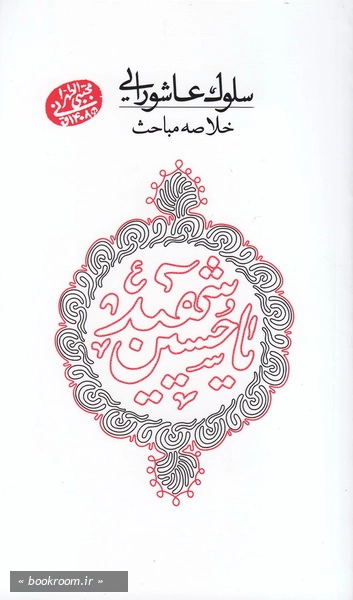 سلوك عاشورایی
خلاصه مباحث
مجتبی الطهرانی
۱۴۰۸
یا حسین شهید
« bookroom.ir »